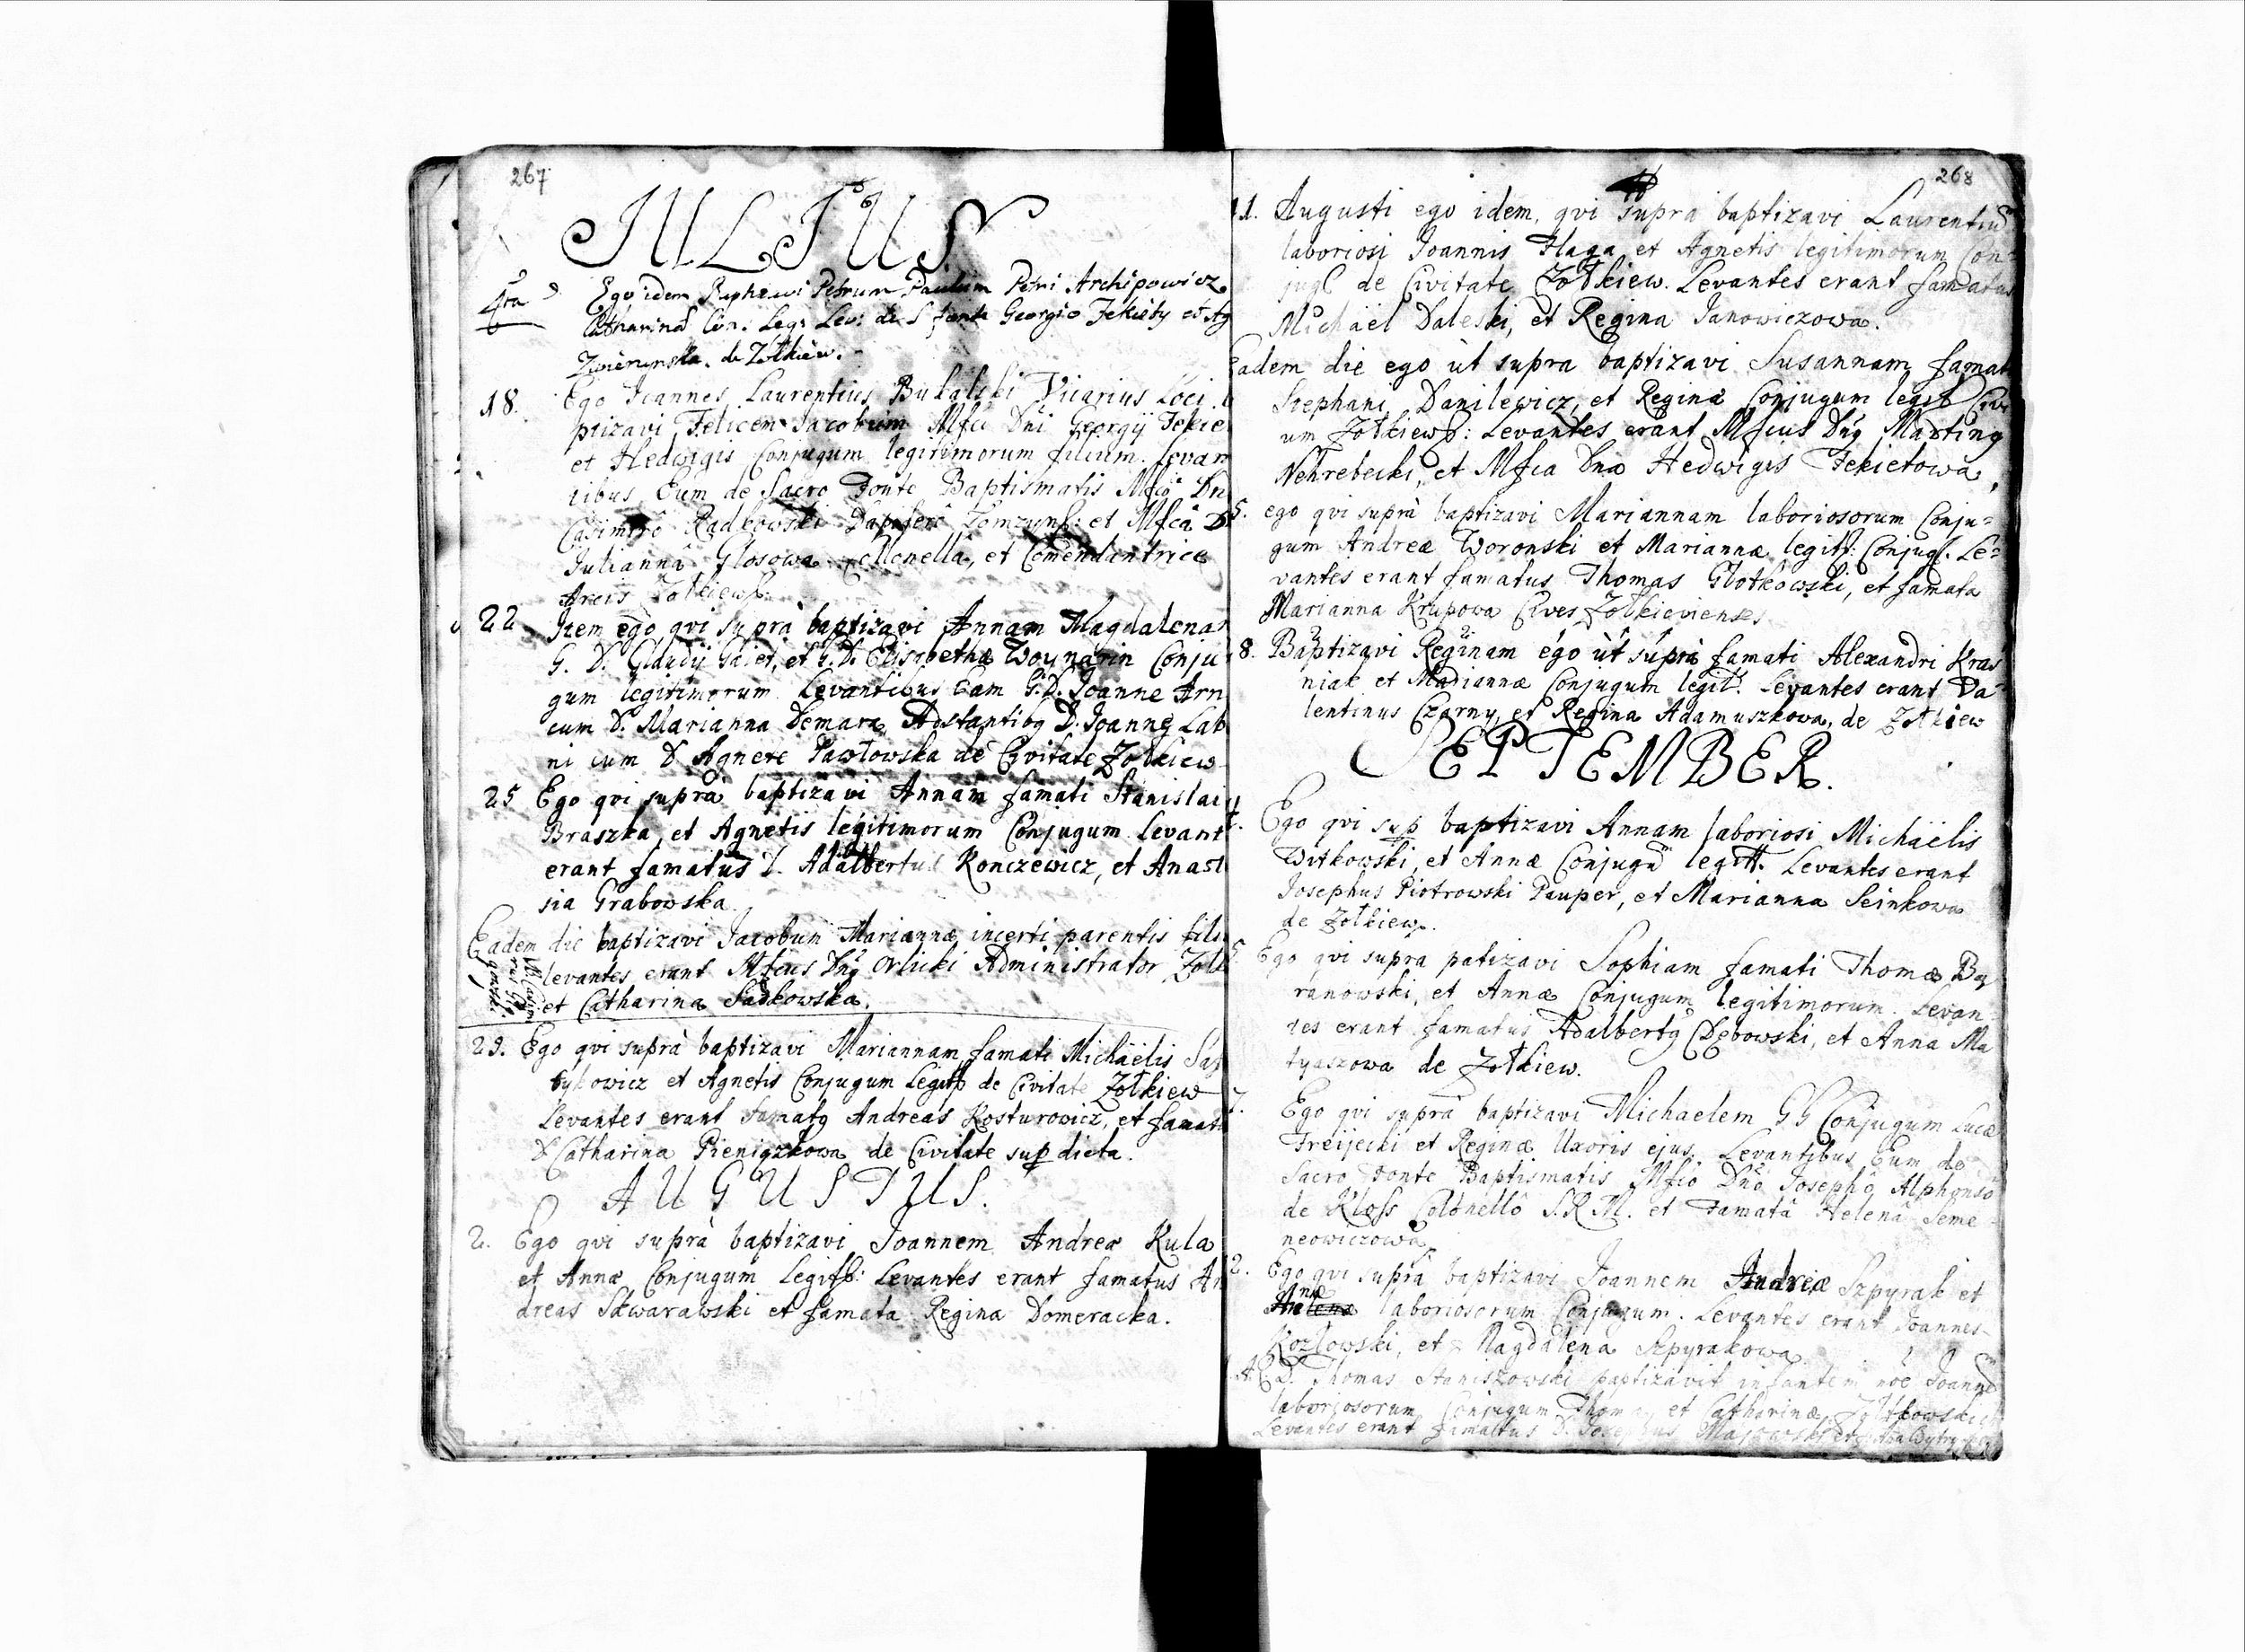 267
JULIUS
4ta Ego idem Baptizavi Petrum Paulum Petri Archipowicz
Catharinæ Con: Leg: Lev: de S fonte Georgio Fekiety et Ag
Zwierzynska. de Zołkiew.
18. Ego Joannes Laurentius Bukalski Vicarius Loci
ptizavi Felicem Jacobum Mfci Dni Georgij Fekie
et Hedwigis Conjugum legitimorum filium. Levan
tibus Eum de Sacro Fonte Baptismatis Mfco Dn
Casimirô Radkowski Dapiferô et Mfcâ D
Juliannâ Glosowa et Comendantrice
Arcis Zolkiews:
22 Item ego qvi suprà baptizavi Annam Magdalenam
G. D. Claudij Galet, et G. D. Elisabethæ Woynarin Conju
gum legitimorum Levantibus Eam G. D. Joanne Arn
cum D. Marianna Demara, Adstantibg D. Joanne Lab
ni cum D Agnete Pawłowska de Civitate Zołkiew
25 Ego qvi suprà baptizavi Annam famati Stanislai
Braszka, et Agnetis legitimorum Conjugum Levant
erant famatus Adalbertus Konczewicz, et Anast
sia Grabowska
Eadem die baptizavi Jacobum Mariannæ incerti parentis filiu
levantes erant Mfcus Dng Orlicki Administrator Zolk
et Catharina Sadkowska.
29. Ego qvi suprà baptizavi Mariannam famati Michaëlis Say
bykowicz et Agnetis Conjugum Legitß de Civitate Zołkiew
Levantes erant Famatg Andreas Kosturowicz, et famat
D Catharina Pieniązkowa de Civitate sup dicta.
AUGUSTUS.
2. Ego qvi suprà baptizavi Joannem Andreæ Kula
et Annæ Conjugum Legitß: Levantes erant famatus An
dreas Skwarawski et famata Regina Domeracka.
268
11. Augusti ego idem, qvi supra baptizavi Laurentiu
laboriosi Joannis Flaga et Agnetis legitimorum Con=
jugß de Civitate Zołkiew. Levantes erant famatus
Michaël Daleski, et Regina Janowiczowa.
Eadem die ego ùt supra baptizavi Susannam famat
Stephani Danilewicz, et Reginæ Conjugum legiß Civi
um Zołkiewß: Levantes erant Mfcus Dng Marting
Nehrebecki, et Mfca Dna Hedwigis Fekietowa,
5. ego qvi suprà baptizavi Mariannam laboriosorum Conju=
gum Andreæ Woronski et Mariannæ legitß: Conjugß. Le=
vantes erant famatus Thomas Głotkowski, et famata
Marianna Krupowa Cives Zołkievienses
8. Baptizavi Reginam ego ùt suprà famati Alexandri Kras
niak et Mariannæ Conjugum legitß. Levantes erant Va
lentinus Czarny, et Regina Adamuszkowa, de Zołkiew
SEPTEMBER.
Ego qvi sup baptizavi Annam laboriosi Michaëlis
Witkowski, et Annæ Conjugũ legitt. Levantes erant
Josephus Piotrowski Pauper, et Marianna Seinkowa
de Zołkiew.
5. Ego qvi supra patizavi Sophiam famati Thomæ Ba
ranowski, et Annæ Conjugum legitimorum. Levan
tes erant famatus Adalbertg Dębowski, et Anna Ma
tyaszowa de Zołkiew.
7. Ego qvi suprà baptizavi Michaelem GG Conjugum Lucæ
Freijecki et Reginæ Uxoris ejus. Levantibus Eum de
Sacro Fonte Baptismatis Mfco Dño Josephô Alphonso
de Kloss Colonellô S.R.M. et Famatâ Helenâ Seme
neowiczowa
12. Ego qvi suprà baptizavi Joannem Andreæ Szpyrak et
Annæ laboriosorum Conjugum. Levantes erant Joannes
Kozłowski, et Magdalena Szpyrakowa
D. Thomas Staniszowski baptizavit infantem noë Joanne
laboriosorum Conjugum Thomæ et Catharinæ
Levantes erant famattus D. Josephus Majowski et